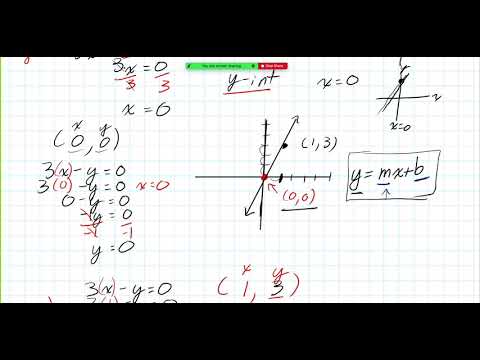 3x = 0
3 3
x = 0
x y
(0, 0)
3(x) - y = 0
3(0) - y = 0 x=0
0 - y = 0
-1y = 0
-1 -1
y = 0
3(x) - y = 0
You are screen sharing Stop Share
y-int x = 0
(1,3)
(0,0)
x y
(1, 3)
x
x=0
y = mx+b